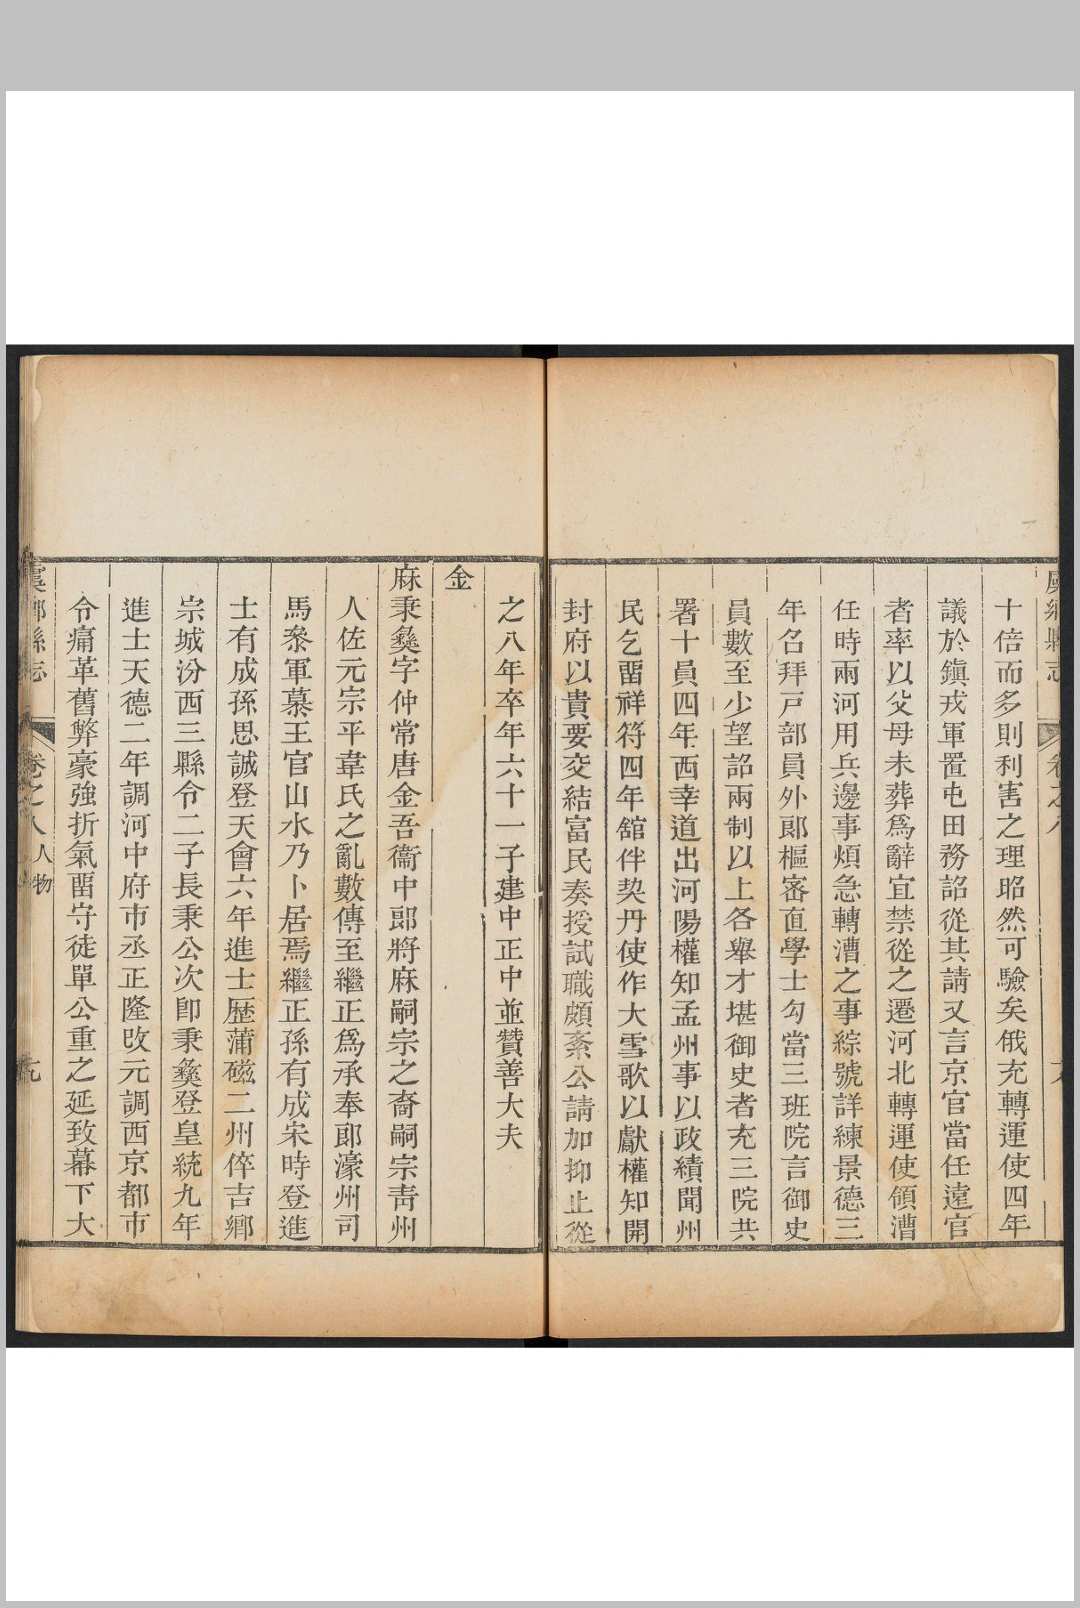 虞鄉縣志
卷之八
十倍而多則利害之理昭然可驗矣俄充轉運使四年
議於鎭戎軍置屯田務詔從其請又言京官當任遠官
者率以父母未葬爲辭宜禁從之遷河北轉運使領漕
任時兩河用兵邊事煩急轉漕之事綜號詳練景德三
年召拜戸部員外郎樞密直學士勾當三班院言御史
員數至少望詔兩制以上各舉才堪御史者充三院共
署十員四年西幸道出河陽權知孟州事以政績聞州
民乞畱祥符四年舘伴契丹使作大雪歌以獻權知開
封府以貴要交結富民奏授試職頗紊公請加抑止從
之八年卒年六十一子建中正中並贊善大夫
金
麻秉彝字仲常唐金吾衞中郎將麻嗣宗之裔嗣宗靑州
人佐元宗平韋氏之亂數傳至繼正爲承奉郎濠州司
馬叅軍慕王官山水乃卜居焉繼正孫有成宋時登進
士有成孫思誠登天會六年進士歷蒲磁二州倅吉鄉
宗城汾西三縣令二子長秉公次卽秉彝登皇統九年
進士天德二年調河中府市丞正隆改元調西京都市
令痛革舊弊豪強折氣畱守徒單公重之延致幕下大
虞鄉縣志
卷之八人物
九